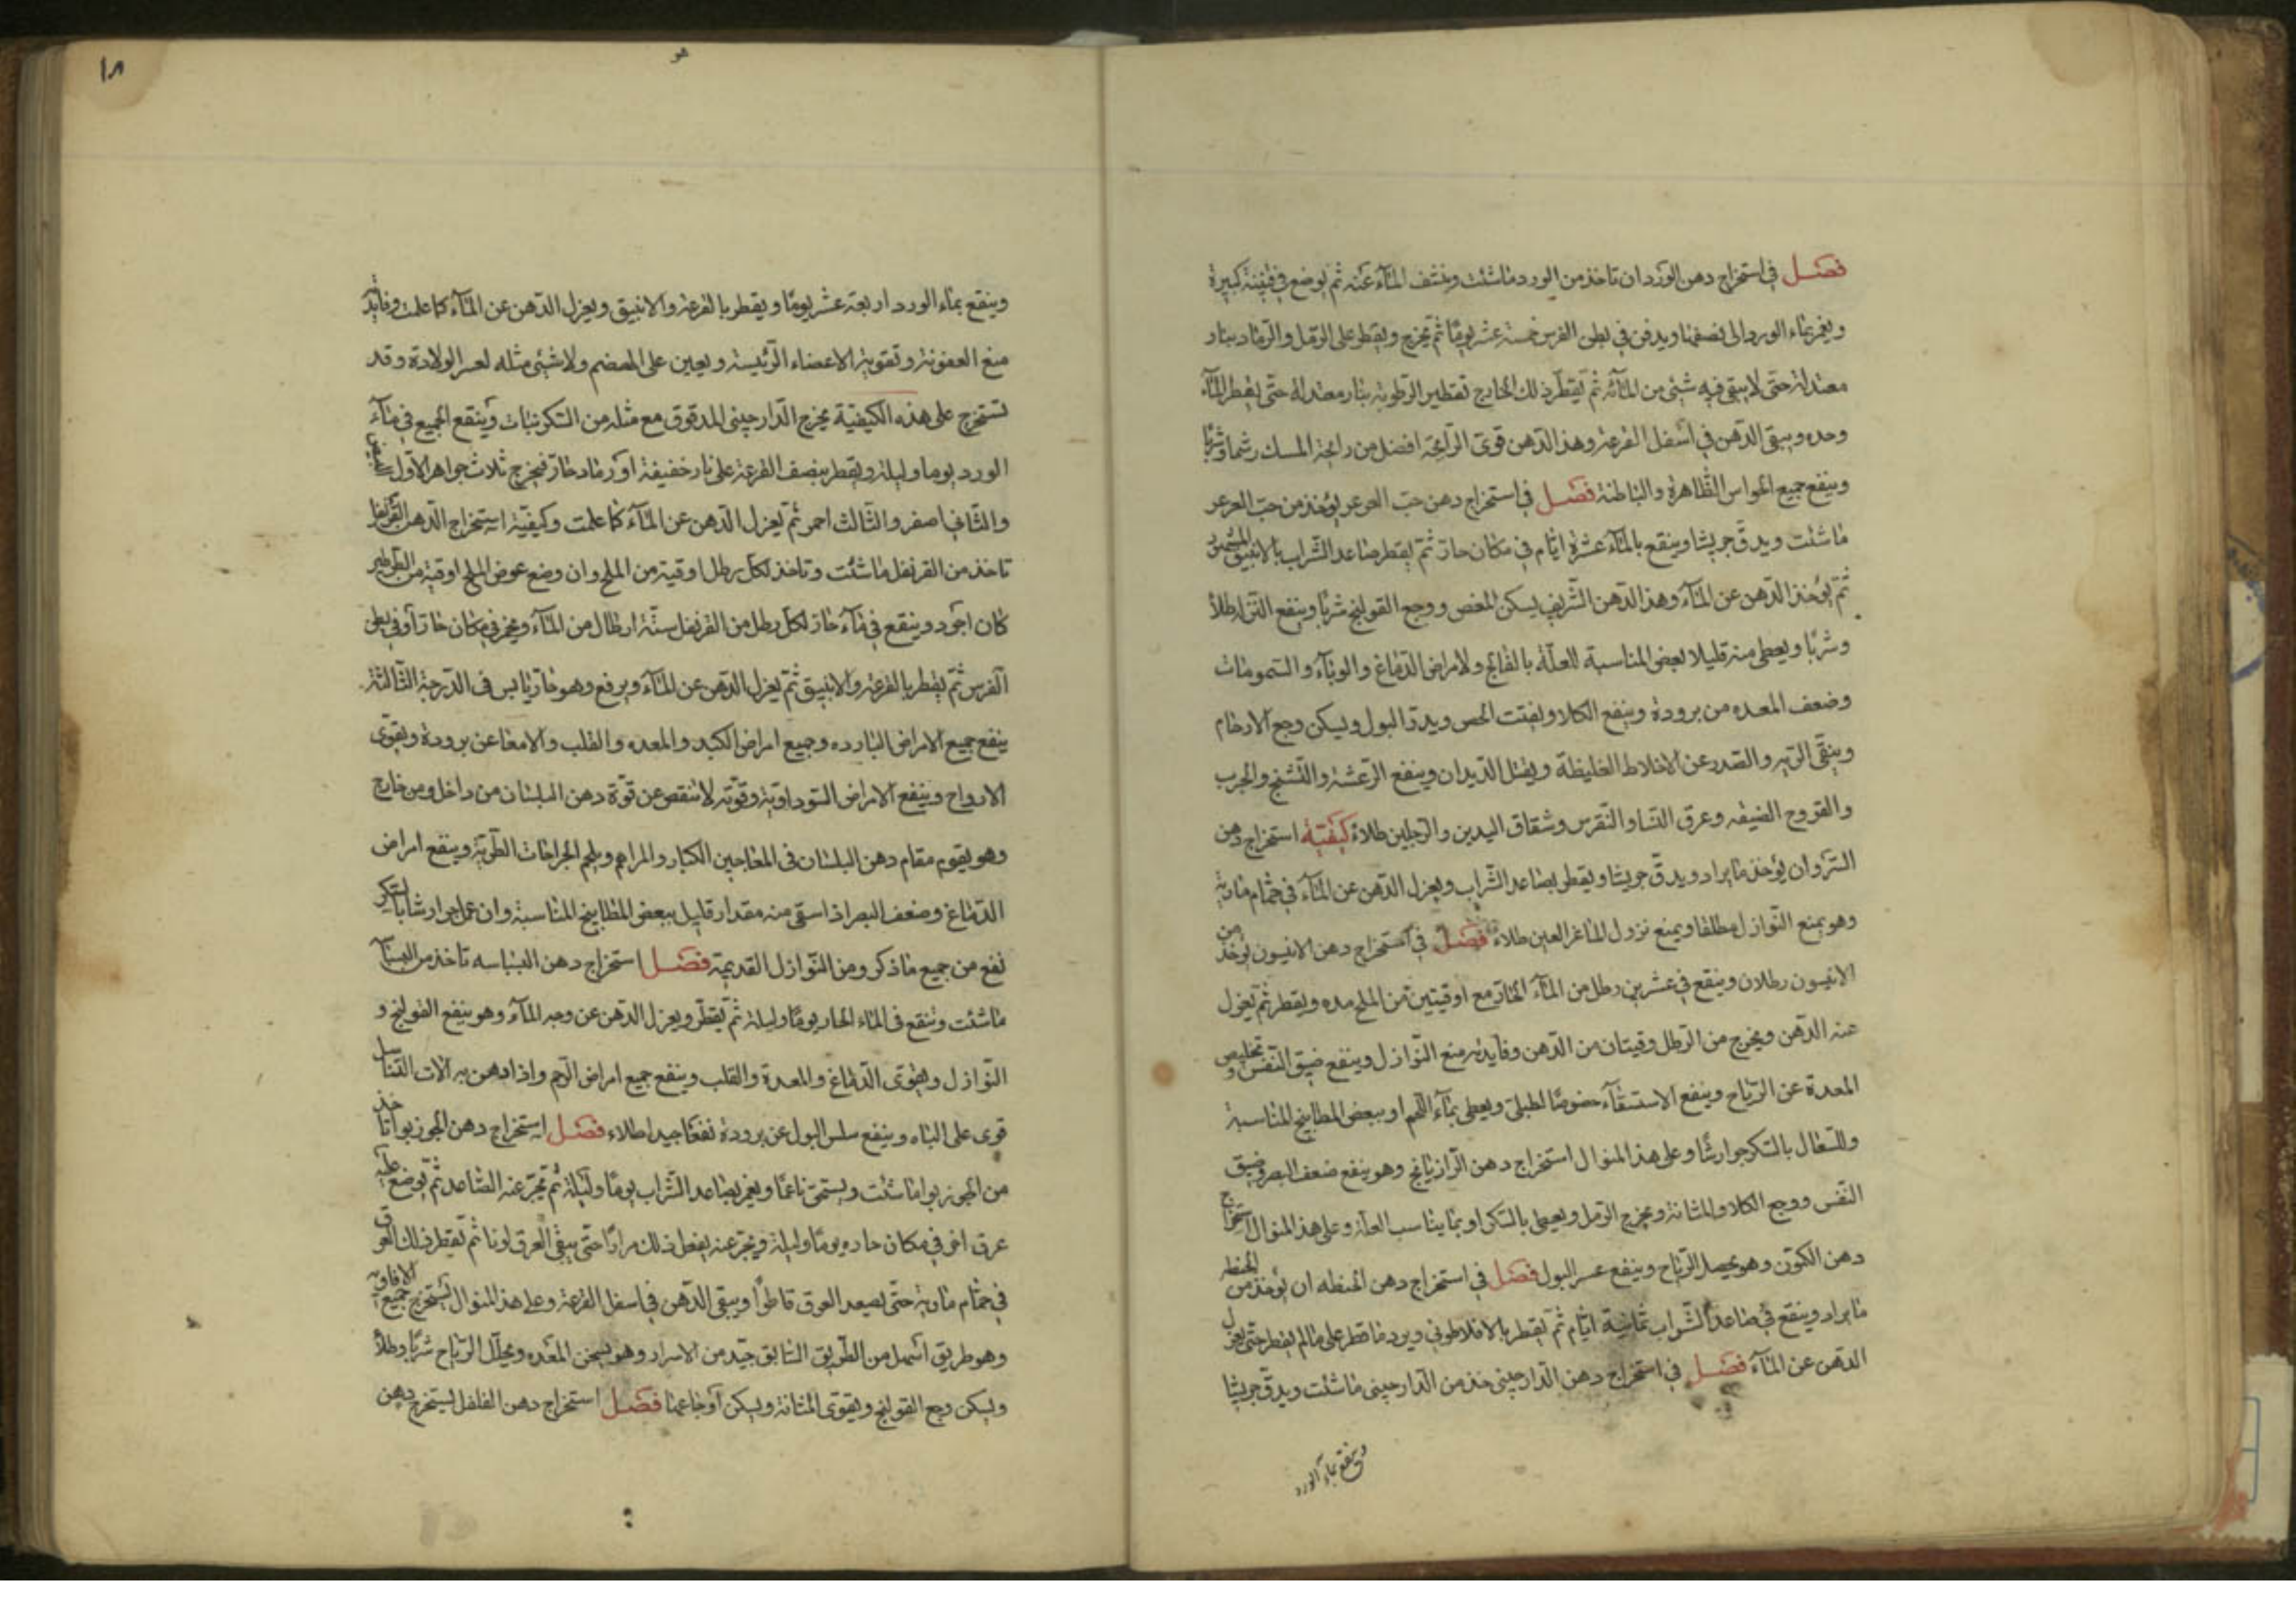 فصل في استخراج دهن الورد ان تاخذ من الورد ماشئت وينشف المآء عنه ثم يوضع في قنينة كبيرة
ويغمر بماء الورد الى نصفها ويدفن في بطن الفرس خمسة عشر يومًا ثم يخرج ويقطر على الرمل والرماد بنار
معتدلة حتى لا يبقى فيه شئ من المائه ثم يقطر ذلك الخارج تقطير الرطوبة بنار معتدله حتى يقطر المآء
وحده ويبقى الدهن في اسفل القرعة وهذ الدهن قوى الرايحة افضل من رايحة المسك شما وشربا
وينفع جميع الحواس الظاهرة والباطنة فصل في استخراج دهن حب العرعر يؤخذ من حب العرعر
ماشئت ويدق جريشا وينقع بالمآء عشرة ايام في مكان حار ثم يقطر صاعد الشراب بالانبيق
ثم يؤخذ الدهن عن المآء وهذ الدهن الشريف يسكن المغص ووجع القولنج شربا وينفع طلأ
وشربًا ويعطى منه قليلا بعض المناسبة للعلة بالفالج ولامراض الدماغ والوبآء والسمومات
وضعف المعده من برودة وينفع الكلا ويفتت الحص ويدر البول ويسكن وجع الارحام
وينقى الريه والصدر عن الاخلاط الغليظة ويقتل الديدان وينفع الرعشة والتشنج والجرب
والقروح وعرق النسا والنقرس وشقاق اليدين والرجلين طلاء كيفية استخراج دهن
السرو ان يؤخذ مايراد ويدق جريشا ويقطر بصاعد الشراب ويعزل الدهن عن المآء في حمام مارية
وهو يمنع النوازل مطلقا ويمنع نزول المآ العين طلاء فصل في استخراج دهن الانيسون يؤخذ من
الانيسون رطلان وينقع في عشرين رطل من المآء الحار مع اوقيتين من الملح مده ويقطر ثم يعزل
عنه الدهن ويخرج من الرطل وقيتان من الدهن وفايدته منع النوازل وينفع ضيق النفس وتخليص
المعدة عن الرياح وينفع الاستسقآء خصوصًا لطبلى ويعطى بمآء اللحم او ببعض المطابيخ المناسبة
وللسعال بالسكر جوارشا وعلى هذ المنوال استخراج دهن الرازيانج وهو ينفع ضعف البصر وضيق
النفس ووجع الكلا والمثانة ويخرج الرمل ويعطى بالسكر او بما يناسب العلة وعلى هذ المنوال استخراج
دهن الكمون وهو الرياح وينفع عسر البول فصل في استخراج دهن الحنطه ان يؤخذ من الحنطه
مايراد وينقع في صاعد الشراب ثمانية ايام ثم يقطر بالافلاطونى ويرد ماقطر على مالم يقطر حتى يعزل
الدهن عن المآء فصل في استخراج دهن الدارچينى خذ من الدارچينى ماشئت ويدق جريشا
وينقع بمآء الورد
١٨
هو
وينقع بماء الورد اربعة عشر يومًا ويقطر بالقرعة والانبيق ويعزل الدهن عن المآء كما علمت وفايدته
منع العفونة وتقوية الاعضاء الرئيسة ويعين على الهضم ولاشئ مثله لعسر الولادة وقد
تستخرج على هذه الكيفية يخرج الدارچينى المدقوق مع مثله من السكر نبات وينقع الجميع في مآء
الورد يوما وليلة ويقطر بنصف القرعة على نار خفيفة او رماد حار فيخرج ثلاث جواهر الاول
والثانى اصفر والثالث احمر ثم يعزل الدهن عن المآء كما علمت وكيفية استخراج الدهن القرنفل
تاخذ من القرنفل ماشئت وتاخذ لكل رطل اوقية من الملح وان وضع عوض الملح اوقية من الطرطير
كان اجود وينقع في مآء حار لكل رطل من القرنفل ستة ارطال من المآء ويخمر في مكان حار أو في بطن
الفرس ثم يقطر بالقرعة والانبيق ثم يعزل الدهن عن المآء ويرفع وهو حار يابس فى الدرجة الثالثة
ينفع جميع الامراض البارده وجميع امراض الكبد والمعده والقلب والامعا عن برودة ويقوى
الارواح وينفع الامراض السوداوية وقوته لاتنقص عن قوة دهن البلسان من داخل ومن خارج
وهو يقوم مقام دهن البلسان فى المعاجين الكبار والمراهم ويلحم الجراحات الطرية وينفع امراض
الدماغ وضعف البصر اذ استى منه مقدار قليل ببعض المطابيخ المناسبة وان عمل جوارشا بالسكر
نفع من جميع ماذكر ومن النوازل القديمة فصل استخراج دهن البسباسه تاخذ من البسبا
ماشئت وتنقع فى الماء الحار يومًا وليلة ثم يقطر ويعزل الدهن عن وجه المآء وهو ينفع القولنج و
النوازل ويقوى الدماغ والمعدة والقلب وينفع جميع امراض الرحم واذا دهن به الات التناسل
قوى على الباه وينفع سلس البول عن برودة نفعًا جيدا طلاء فصل استخراج دهن الجوزبوا تاخذ
من الجوزبوا ماشئت ويسحق ناعمًا ويغمر بصاعد الشراب يومًا وليلة ثم تجر عنه الصاعد ثم يوضع عليه
عرق اخر في مكان حار يومًا وليلة ويجر عنه يفعل ذلك مرارًا حتى يبقى العرق لونا ثم يقطر ذلك العرق
في حمام مارية حتى يصعد العرق قاطرًا ويبقى الدهن في اسفل القرعة وعلى هذ المنوال تستخرج جميع الافاوية
وهو طريق اسهل من الطريق السابق جيد من الاسرار وهو يسخن المعده ويحلل الرياح شربًا وطلأ
ويسكن وجع القولنج ويقوى المثانة ويسكن أوجاعها فصل استخراج دهن الفلفل يستخرج دهن